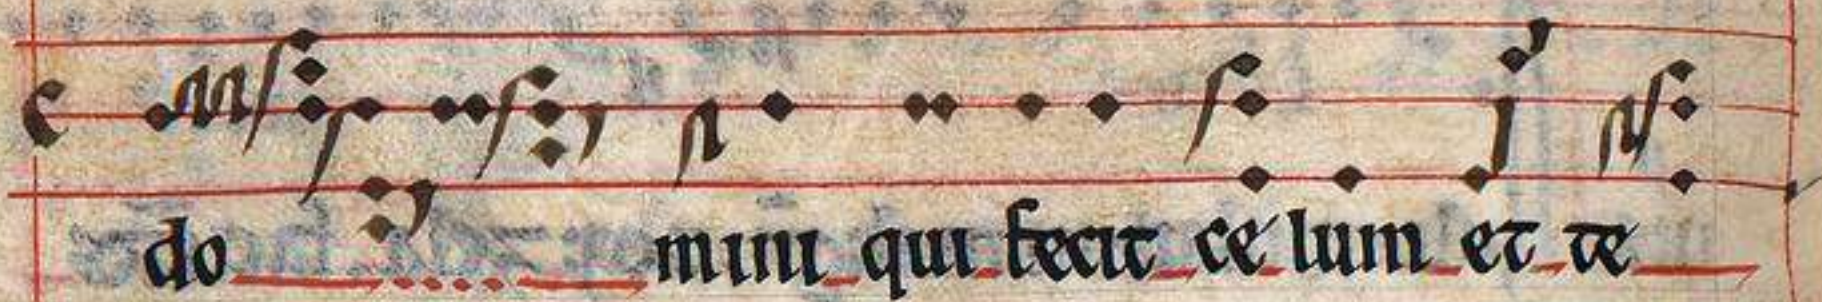 do mini qui fecit ce lum et te